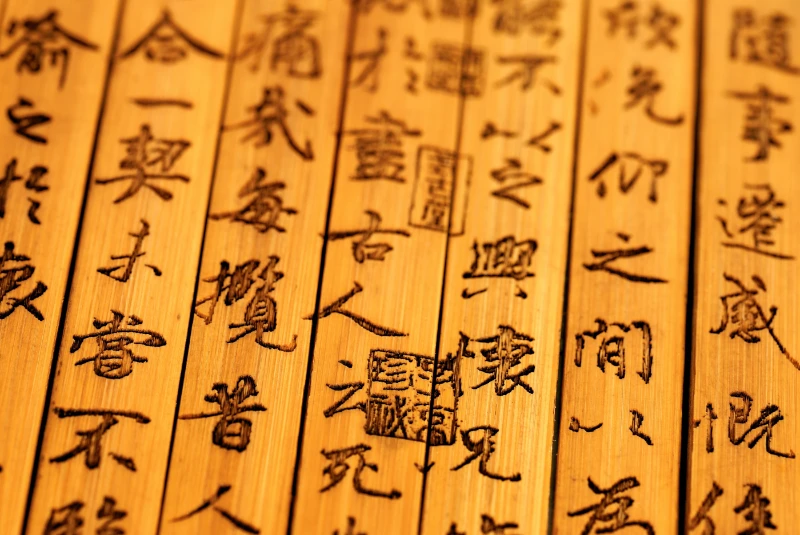 隨事遷感慨係
欣俛仰之間以為
能不以之興懷况
於盡古人云死
痛哉每攬昔人
合一契未嘗不臨
喻之於懷